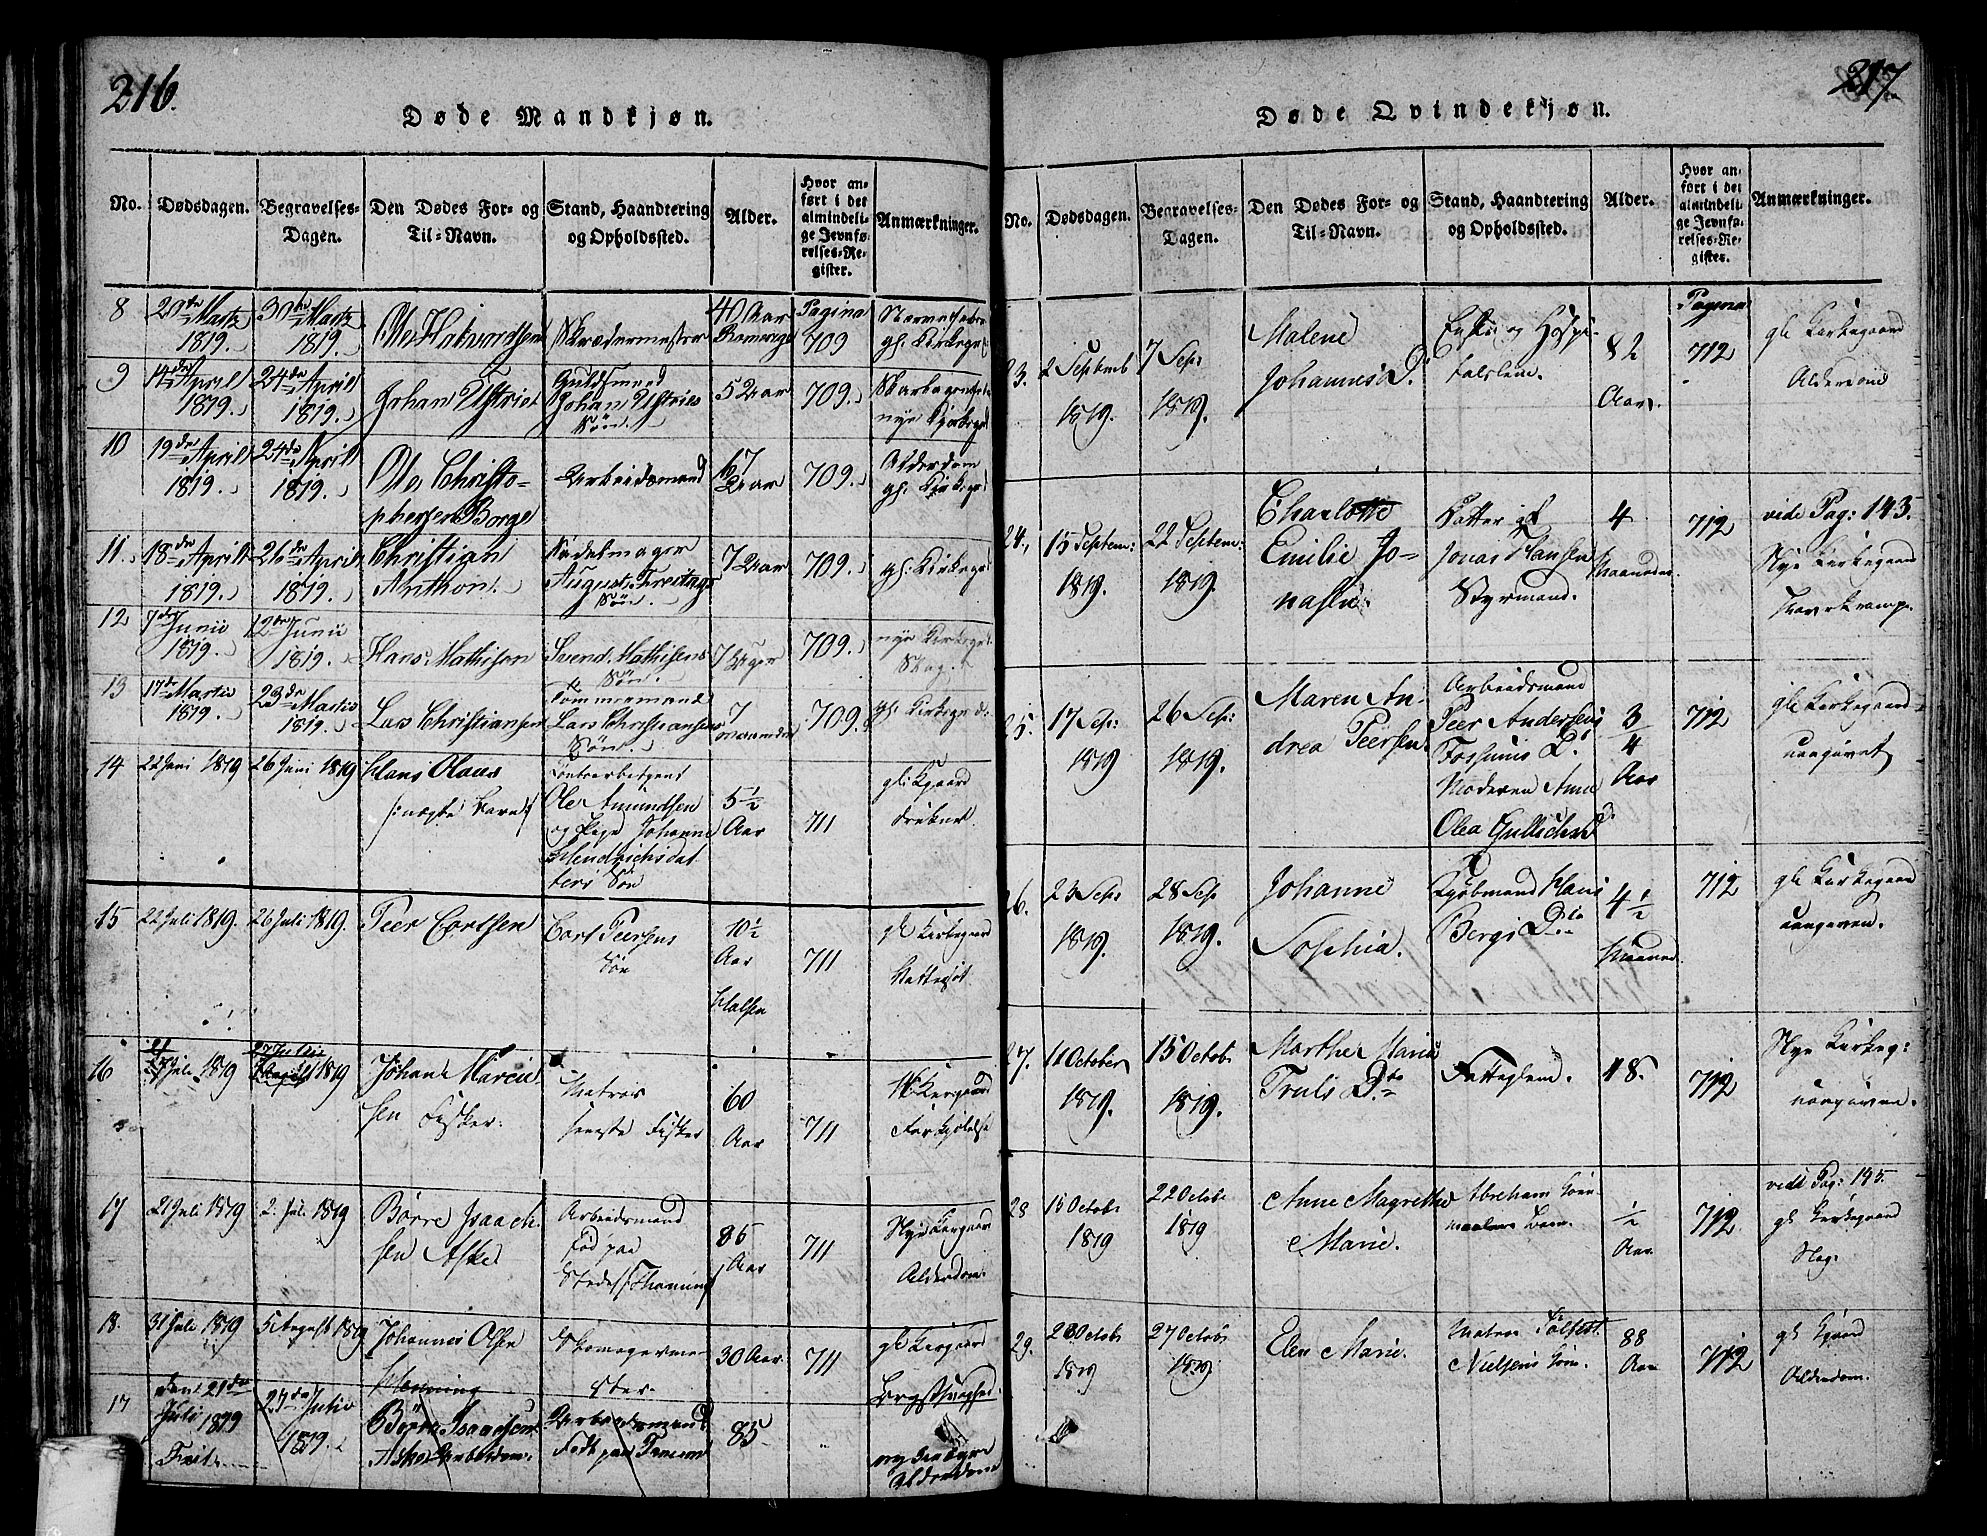 216.
Døde Mandkjøn.
No. Dødsdagen. Begravelses-Dagen. Den Dødes For- og Til-Navn. Stand, Haandtering og Opholdssted. Alder. Hvor anført i det almindelige Jevnførelses-Register. Anmærkninger.
8 20de Martz 1819. 30te Martz 1819. Ole Hakvordsen Skrædermester 40 Aar Pagina 709 gl. Kirkegd
9 14de April 1819. 24de April 1819. Johan Ustriet Guldsmed Johan Ustries Søn. 5 Aar 709. nye Kirkegd
10 19de April 1819. 24de April 1819. Ole Christophersen Borge Arbeidsmand 67 Aar 709. Alderdom gl. Kirkegd
11. 18de April 1819. 26de April 1819. Christian Anthon. Sadelmager August Freitags Søn. 7 Aar 709. gl. Kirkegd
12 7de Junii 1819. 12te Junii 1819. Hans Mathison Svend Mathisens Søn. 7 Uger 709. nye Kirkegd. Slag.
13 17de Martii 1819. 23de Martii 1819. Lars Christiansen Tømmermand Lars Christiansens Søn. 7 Maaneder 709. gl. Kirkegd.
14 22 Juni 1819 26 Juni 1819 Hans Olaus /: uægte Barn :/ Ole Amundsen og Pige Johanne Hendrichsdatters Søn 5½ Aar 711 gl. Kgaard druknet
15 22 Juli 1819. 26 Juli 1819. Peer Cortsen Cort Peersens Søn 10½ Aar 711 gl Kirkegaard Vattersot
16 Juli 1819 27 Julii 1819 Johan Marcussen Fisker. Matros Fisker 60 Aar 711 Kirgaard Forkjølelse
17 21 Juli 1819 2. Juli 1819 Børre Isaachsen Aske Arbeidsmand Fød paa Stedet 86 Aar 711 Nye Kirgaar Alderdom.
18. 31 Juli 1819 5 August 1819 Johannes Olsen Henning Skomagermester 30 Aar 711 gl. Kirgaard Brystsvaghed.
17 den 21de Juli 1819 24de Julii 1819. Børre Isaachsen Aske Arbeidsmand Født paa 85 Alderdom
217.
Døde Qvindekjøn.
No. Dødsdagen. Begravelses-Dagen. Den Dødes For- og Til-Navn. Stand, Haandtering og Opholdssted. Alder. Hvor anført i det almindelige Jevnførelses-Register. Anmærkninger.
23. 2 Septemb 1819. 7 Sep: 1819. Malene Johannesd. Enke og Hospitalslem. 82 Aar. Pagina 712 gle Kirkegaard Alderdom
24. 15 Septem: 1819. 22 Septem: 1819. Charlotte Emilie Jonasen. Datter af Jonas Hansen Styrmand. 4 Maaneder. 712 vide Pag: 143. Nye Kirkegaard
25. 17 Sep: 1819 26 Sep: 1819. Maren Andrea Peersen. Arbeidsmand Peer Andersens D. Moderen Anne Olea Gullichsd. 3/4 Aar 712 gle Kirkegaard uangivet
26. 23 Sep: 1819. 28 Sep 1819. Johanne Sophia. Kjøbmand Hans Bergs Dto 4½ Maaned. 712 gle Kirkegaard uangiven.
27. 11 October 1819. 15 Octob: 1819. Marthe Marie Truls Dto Fattiglem. 48. 712 Nye Kirkeg: uangiven.
28 15 Octob: 1819 22 Octob: 1819 Anne Magrethe Marie. Abraham 1/2 Aar 712. vide Pag: 145. gl. Kirkegaard Slag.
29. 23 Octob: 1819 27 Octob: 1819. Elen Marie. Matros Nielsens 88 Aar 712 gl. Kgaard Alderdom.